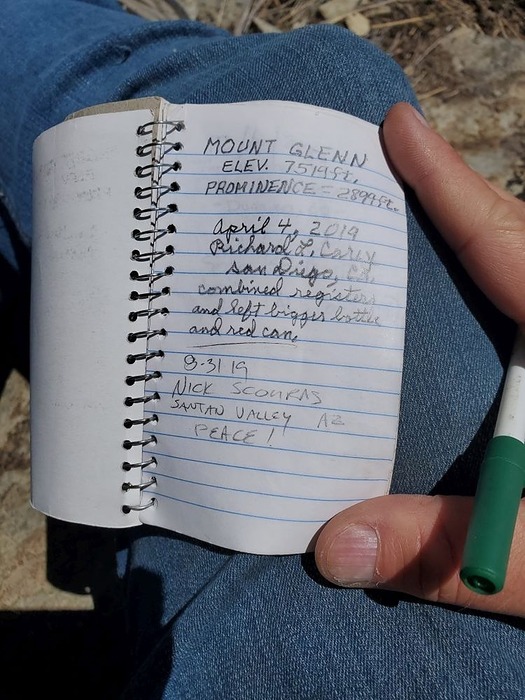 MOUNT GLENN
ELEV. 7519ft.
PROMINENCE = 2899ft.
April 4, 2019
Richard L. Carey
San Diego, CA.
combined registers
and left bigger bottle
and red can.
8-31 19
NICK SCOURAS
SANTAN VALLEY AZ
PEACE!